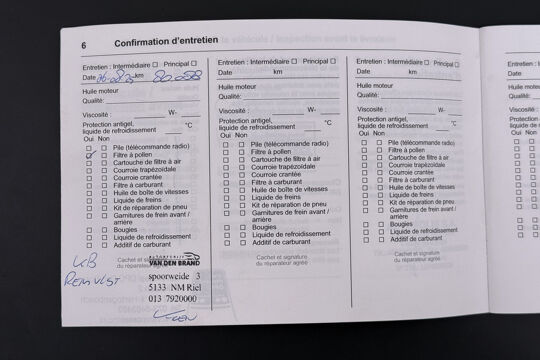 6 Confirmation d'entretien
Entretien : Intermédiaire ☐ Principal ☐
Date km 80.088
Huile moteur
Qualité:
Viscosité : W-
Protection antigel,
liquide de refroidissement °C
Oui Non
Pile (télécommande radio)
Filtre à pollen
Cartouche de filtre à air
Courroie trapézoïdale
Courroie crantée
Filtre à carburant
Huile de boîte de vitesses
Liquide de freins
Kit de réparation de pneu
Garnitures de frein avant /
arrière
Bougies
Liquide de refroidissement
Additif de carburant
Cachet et signature
du réparateur agréé
VAN DEN BRAND
spoorweide 3
5133 NM Riel
013 7920000
Entretien : Intermédiaire ☐ Principal ☐
Date km
Huile moteur
Qualité:
Viscosité : W-
Protection antigel,
liquide de refroidissement °C
Oui Non
Pile (télécommande radio)
Filtre à pollen
Cartouche de filtre à air
Courroie trapézoïdale
Courroie crantée
Filtre à carburant
Huile de boîte de vitesses
Liquide de freins
Kit de réparation de pneu
Garnitures de frein avant /
arrière
Bougies
Liquide de refroidissement
Additif de carburant
Cachet et signature
du réparateur agréé
Entretien : Intermédiaire ☐ Principal ☐
Date km
Huile moteur
Qualité:
Viscosité : W-
Protection antigel,
liquide de refroidissement °C
Oui Non
Pile (télécommande radio)
Filtre à pollen
Cartouche de filtre à air
Courroie trapézoïdale
Courroie crantée
Filtre à carburant
Huile de boîte de vitesses
Liquide de freins
Kit de réparation de pneu
Garnitures de frein avant /
arrière
Bougies
Liquide de refroidissement
Additif de carburant
Cachet et signature
du réparateur agréé
Date
Huile
Oui Non